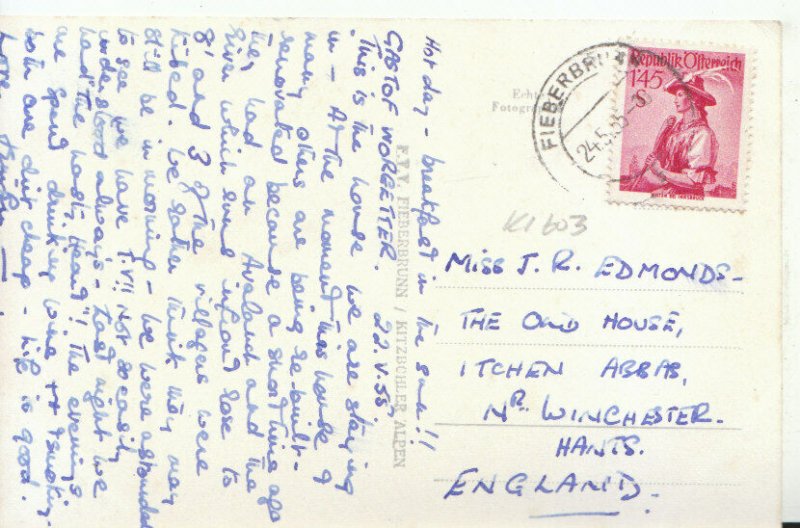 Hot day - breakfast in the sun!!
GASTOF WÖRGETTER. 22.V.55.
This is the house we are staying
in - At the moment this house &
many others are being re-built -
renovated because a short time ago
they had an Avalanche and the
River which runs in front rose to
8' and 3 of the villagers were
killed. We rather think they may
still be in mooring - We were astounded
to see we have T.V!! Not so easily
understood always - Last night we
had the "hasty Heart"! The evenings
are spent drinking wine ++ smoking -
both are dirt cheap - Life is good.
Love.
F.V.V. FIEBERBRUNN / KITZBÜHLER ALPEN
Echte
Fotograf
FIEBERBRUNN
24.5.55-8
Republik Österreich
1'45
K1603
MISS J. R. EDMONDS -
THE OLD HOUSE,
ITCHEN ABBAS,
NR. WINCHESTER.
HANTS.
ENGLAND.